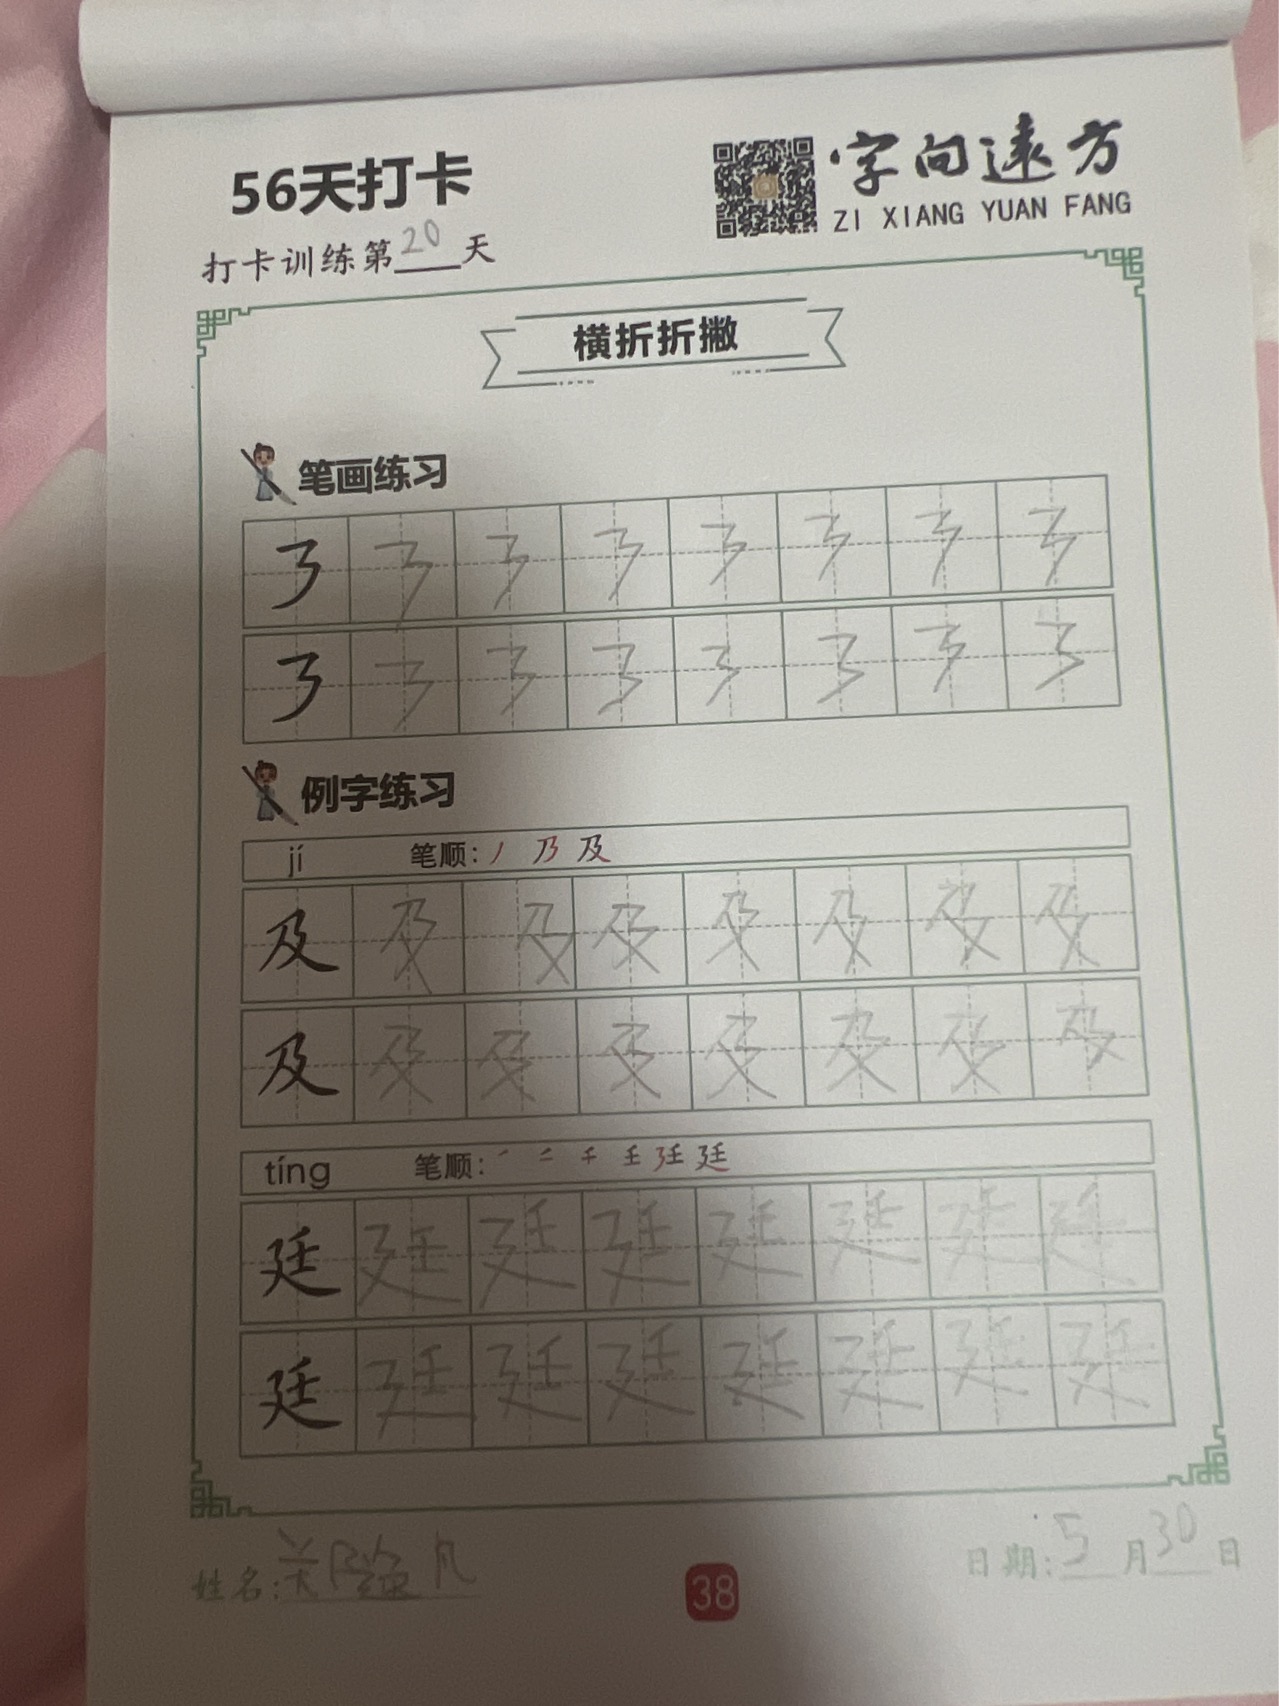 56天打卡
字向遠方
ZI XIANG YUAN FANG
打卡训练第20天
横折折撇
笔画练习
例字练习
jí 笔顺: 丿 乃 及
及 及 及 及 及 及 及 及
及 及 及 及 及 及 及 及
tíng 笔顺:
廷 廷 廷 廷 廷 廷 廷 廷
廷 廷 廷 廷 廷 廷 廷 廷
姓名: 关
38
日期: 5月30日